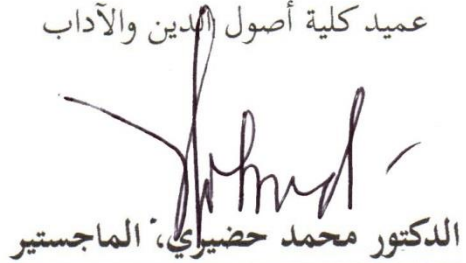 عميد كلية أصول الدين والآداب
الدكتور محمد حضيري، الماجستير